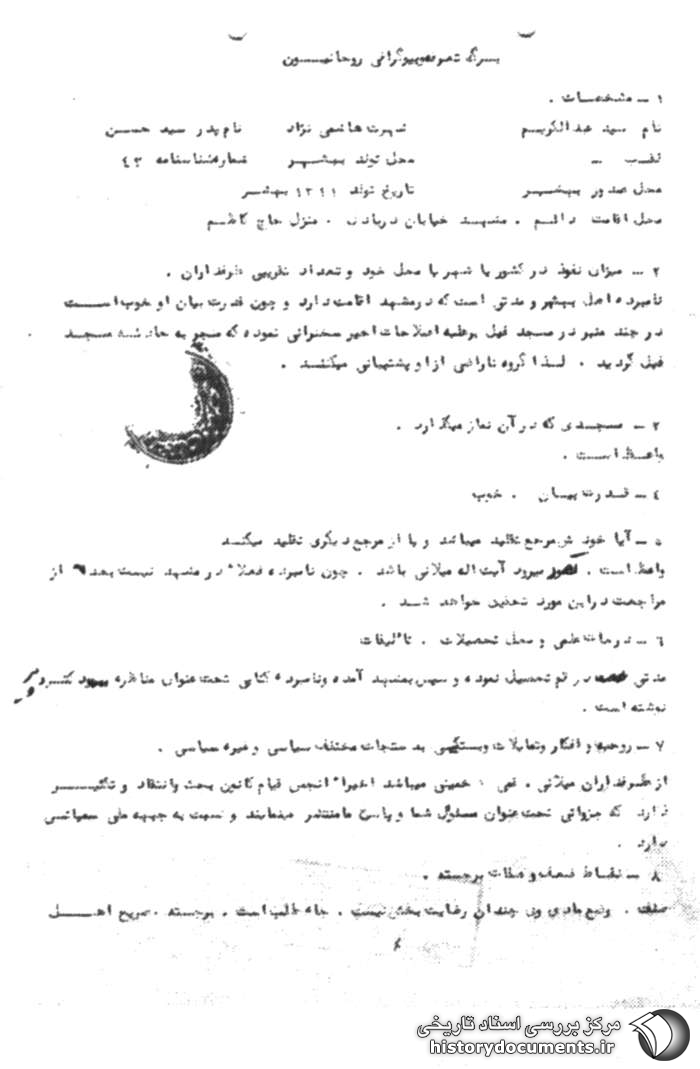 برگ بیوگرافی روحانیون
۱ – مشخصات .
نام سید عبدالکریم شهرت هاشمی نژاد نام پدر سید حسن
لقب – محل تولد بهشهر شماره شناسنامه ۴۳
محل صدور بهشهر تاریخ تولد ۱۳۱۱ بهشهر
محل اقامت دائم . مشهد خیابان دریادل . منزل حاج کاظم
۲ – میزان نفوذ در کشور یا شهر یا محل خود و تعداد تقریبی طرفداران .
نامبرده اهل بهشهر و مدتی است که در مشهد اقامت دارد و چون قدرت بیان او خوب است
در چند منبر در مسجد فیل برعلیه اصلاحات اخیر سخنرانی نموده که منجر به حادثه مسجد
فیل گردید . لذا گروه ناراضی از او پشتیبانی میکنند .
۳ – مسجدی که در آن نماز میگذارد .
واعظ است .
۴ – قدرت بیان . خوب
۵ – آیا خودش مرجع تقلید میباشد و یا از مرجع دیگری تقلید میکند
واعظ است . تصور میرود آیت اله میلانی باشد . چون نامبرده فعلا" در مشهد نیست بعد از
مراجعت در این مورد تحقیق خواهد شد .
۶ – درجات علمی و محل تحصیلات . تألیفات
مدتی در قم تحصیل نموده و سپس بمشهد آمده و نامبرده کتابی تحت عنوان مناظره دکتر و پیر
نوشته است .
۷ – روحیه و افکار و تمایلات و بستگی به دستجات مختلف سیاسی و غیره سیاسی .
از طرفداران میلانی . قمی . خمینی میباشد اخیرا" انجمن بنام کانون بحث و انتقاد
دارد که جزواتی تحت عنوان مسئول شما و پاسخ ما منتشر مینمایند و نسبت به جبهه ملی سمپاتی
دارد .
۸ – نقاط ضعف و صفات برجسته .
ضعف . وضع مادی وی چندان رضایت بخش نیست . جاه طلب است . برجسته . صریح اهل
مرکز بررسی اسناد تاریخی
historydocuments.ir